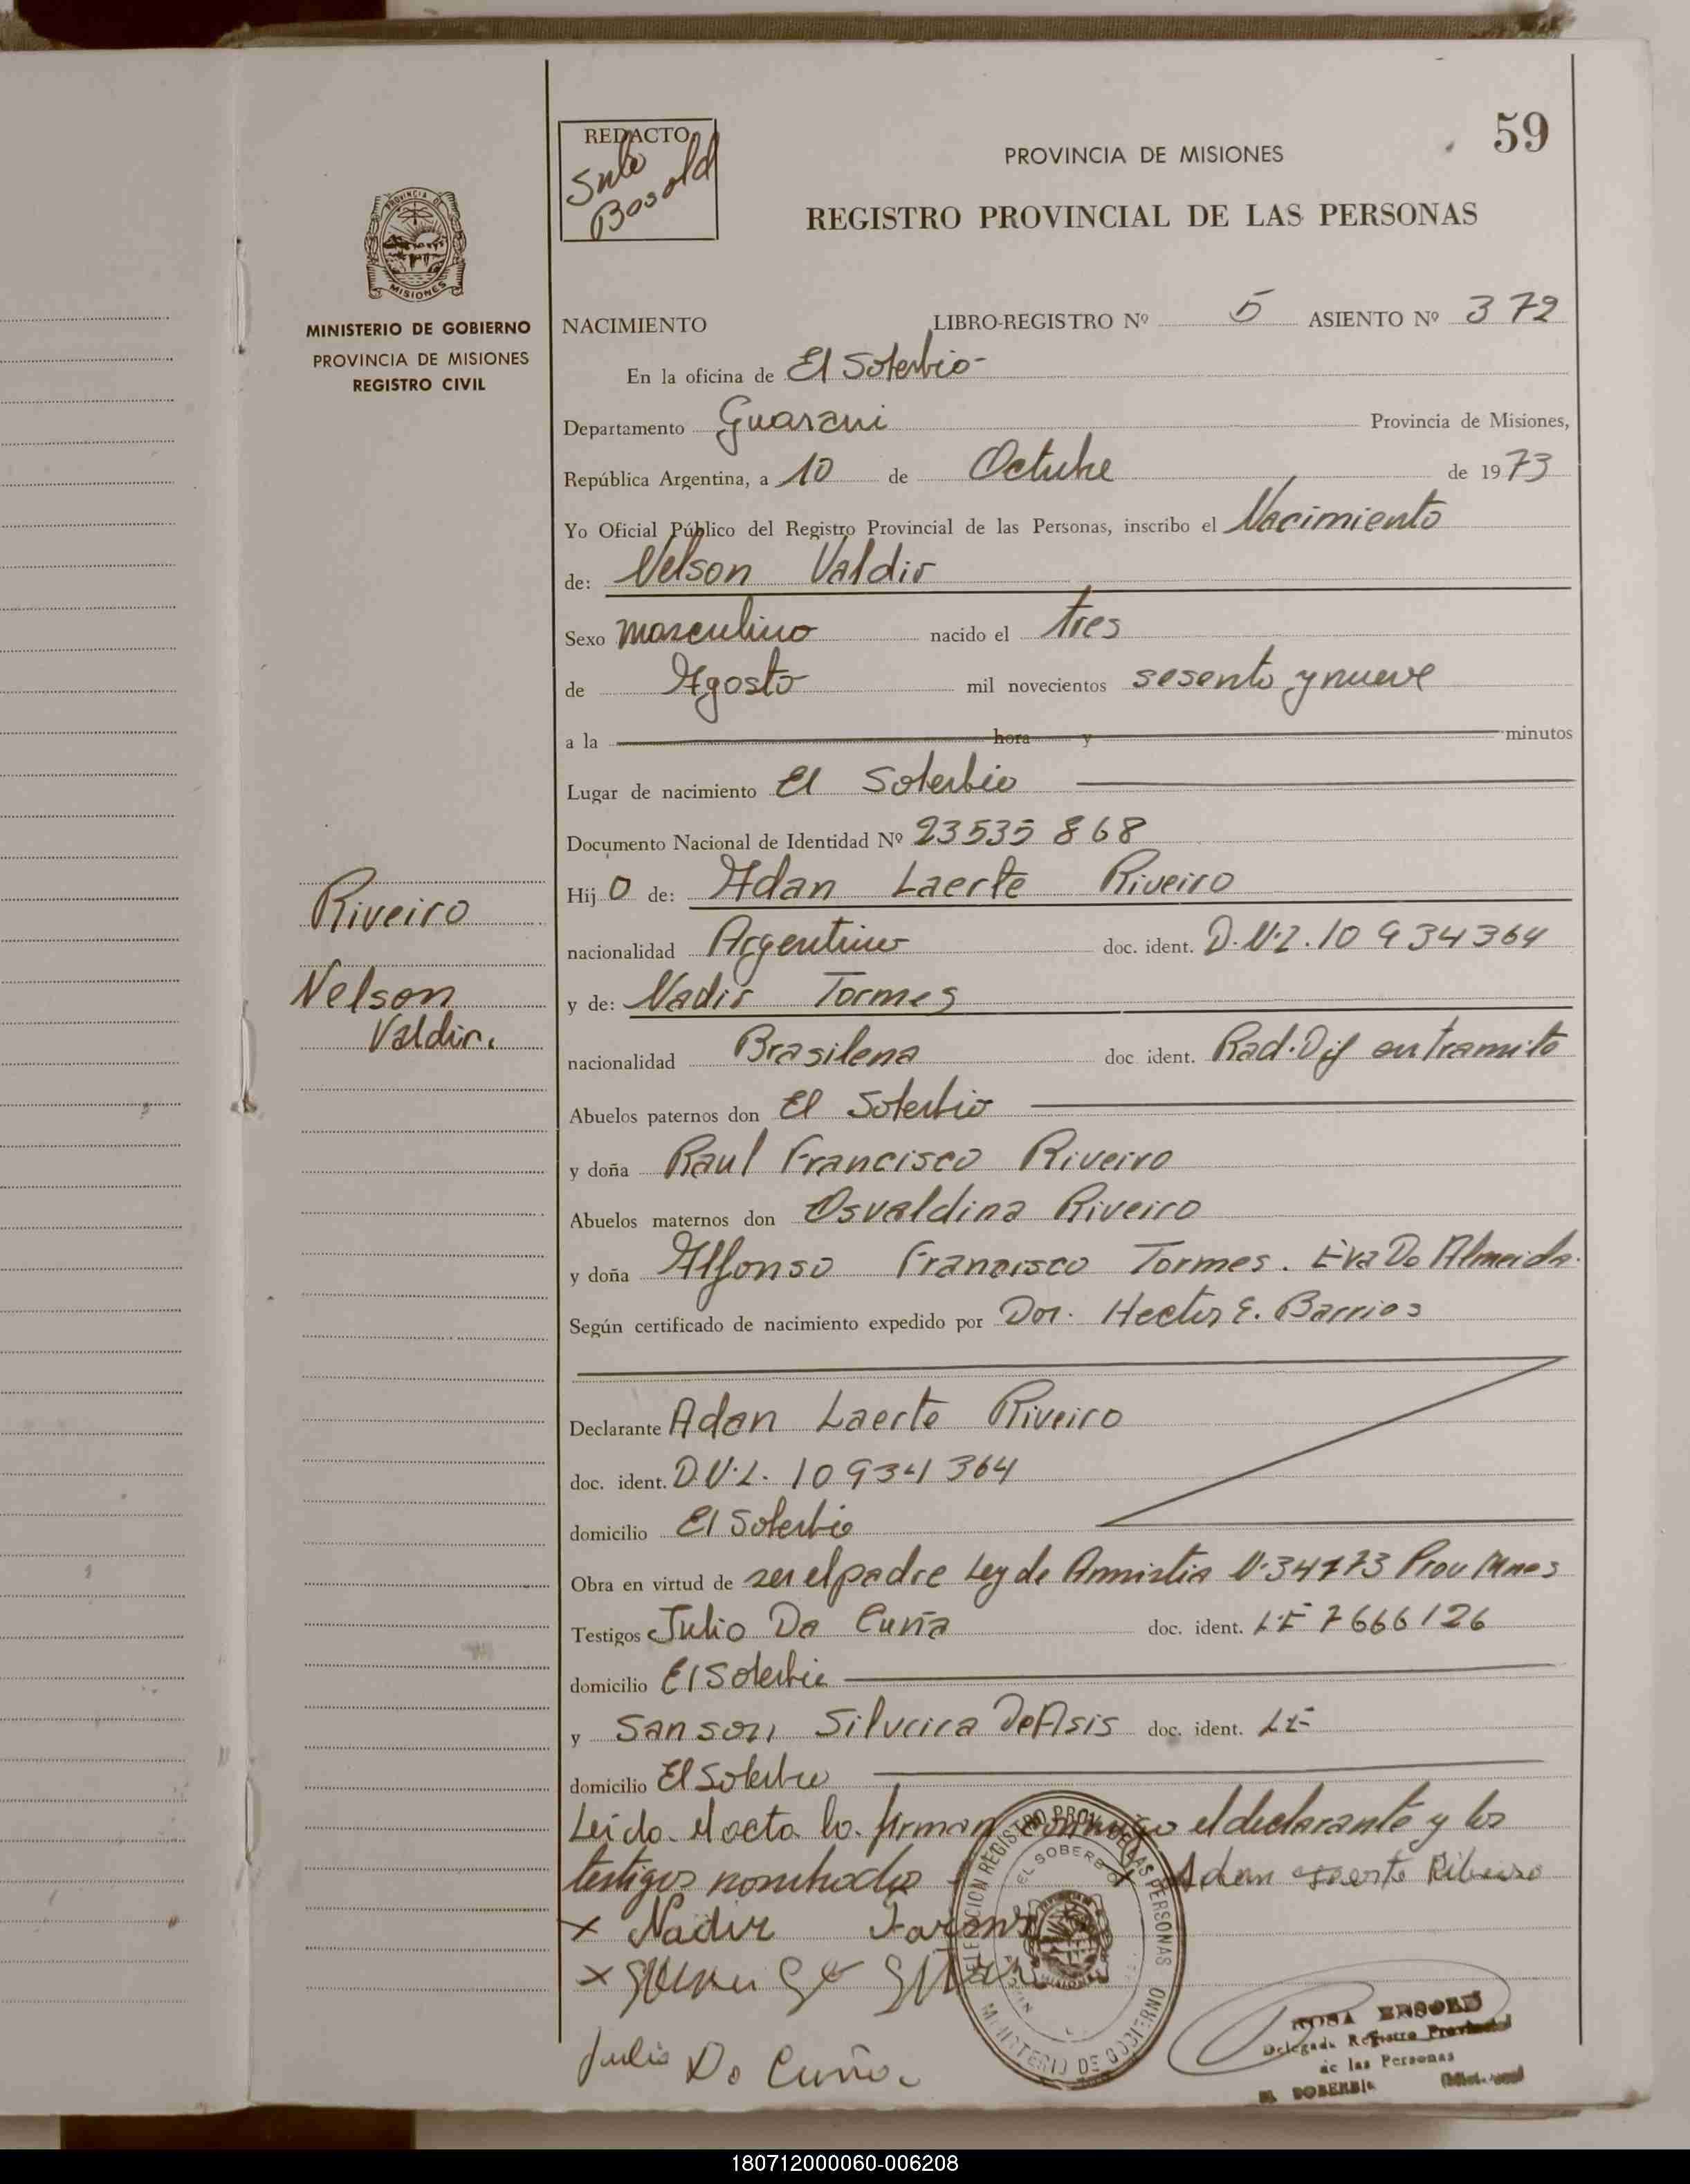 59
REDACTO
PROVINCIA DE MISIONES
REGISTRO PROVINCIAL DE LAS PERSONAS
PROVINCIA DE
MISIONES
MINISTERIO DE GOBIERNO
PROVINCIA DE MISIONES
REGISTRO CIVIL
NACIMIENTO LIBRO-REGISTRO Nº 5 ASIENTO Nº 372
En la oficina de El Soberbio-
Departamento Guarani Provincia de Misiones,
República Argentina, a 10 de Octubre de 1973
Yo Oficial Público del Registro Provincial de las Personas, inscribo el Nacimiento
de: Nelson Valdir
Sexo masculino nacido el tres
de Agosto mil novecientos sesenta y nueve
a la hora y minutos
Lugar de nacimiento El Soberbio
Documento Nacional de Identidad Nº 23535 868
Hijo de: Adan Laerte Riveiro
nacionalidad Argentino doc. ident. D.N.I. 10 934364
y de: Nadir Tormes
nacionalidad Brasilena doc ident. Rad. Dif en tramite
Abuelos paternos don El Soberbio
y doña Raul Francisco Riveiro
Abuelos maternos don Osvaldina Riveiro
y doña Alfonso Francisco Tormes. Eva Do Almeida.
Según certificado de nacimiento expedido por Dor. Hector E. Barrios
Riveiro
Nelson
Valdir.
Declarante Adan Laerte Riveiro
doc. ident. D.N.I. 10 934 364
domicilio El Soberbio
Obra en virtud de ser el padre Ley de Amnistia Prov Mnes
Testigos Julio Da Cuña doc. ident. LE 7666126
domicilio El Soberbio
y Sanson Silveira DeAsis doc. ident. LE
domicilio El Soberbio
Leida el acta la firman conmigo el declarante y los
testigos nombrados x Adan Laerte Ribeiro
x Nadir
Julio Da Cuña.
DELEGACION REGISTRO PROV. DE LAS PERSONAS
EL SOBERBIO
MINISTERIO DE GOBIERNO
ROSA
Delegada Registro Provincial
de las Personas
EL SOBERBIO
180712000060-006208